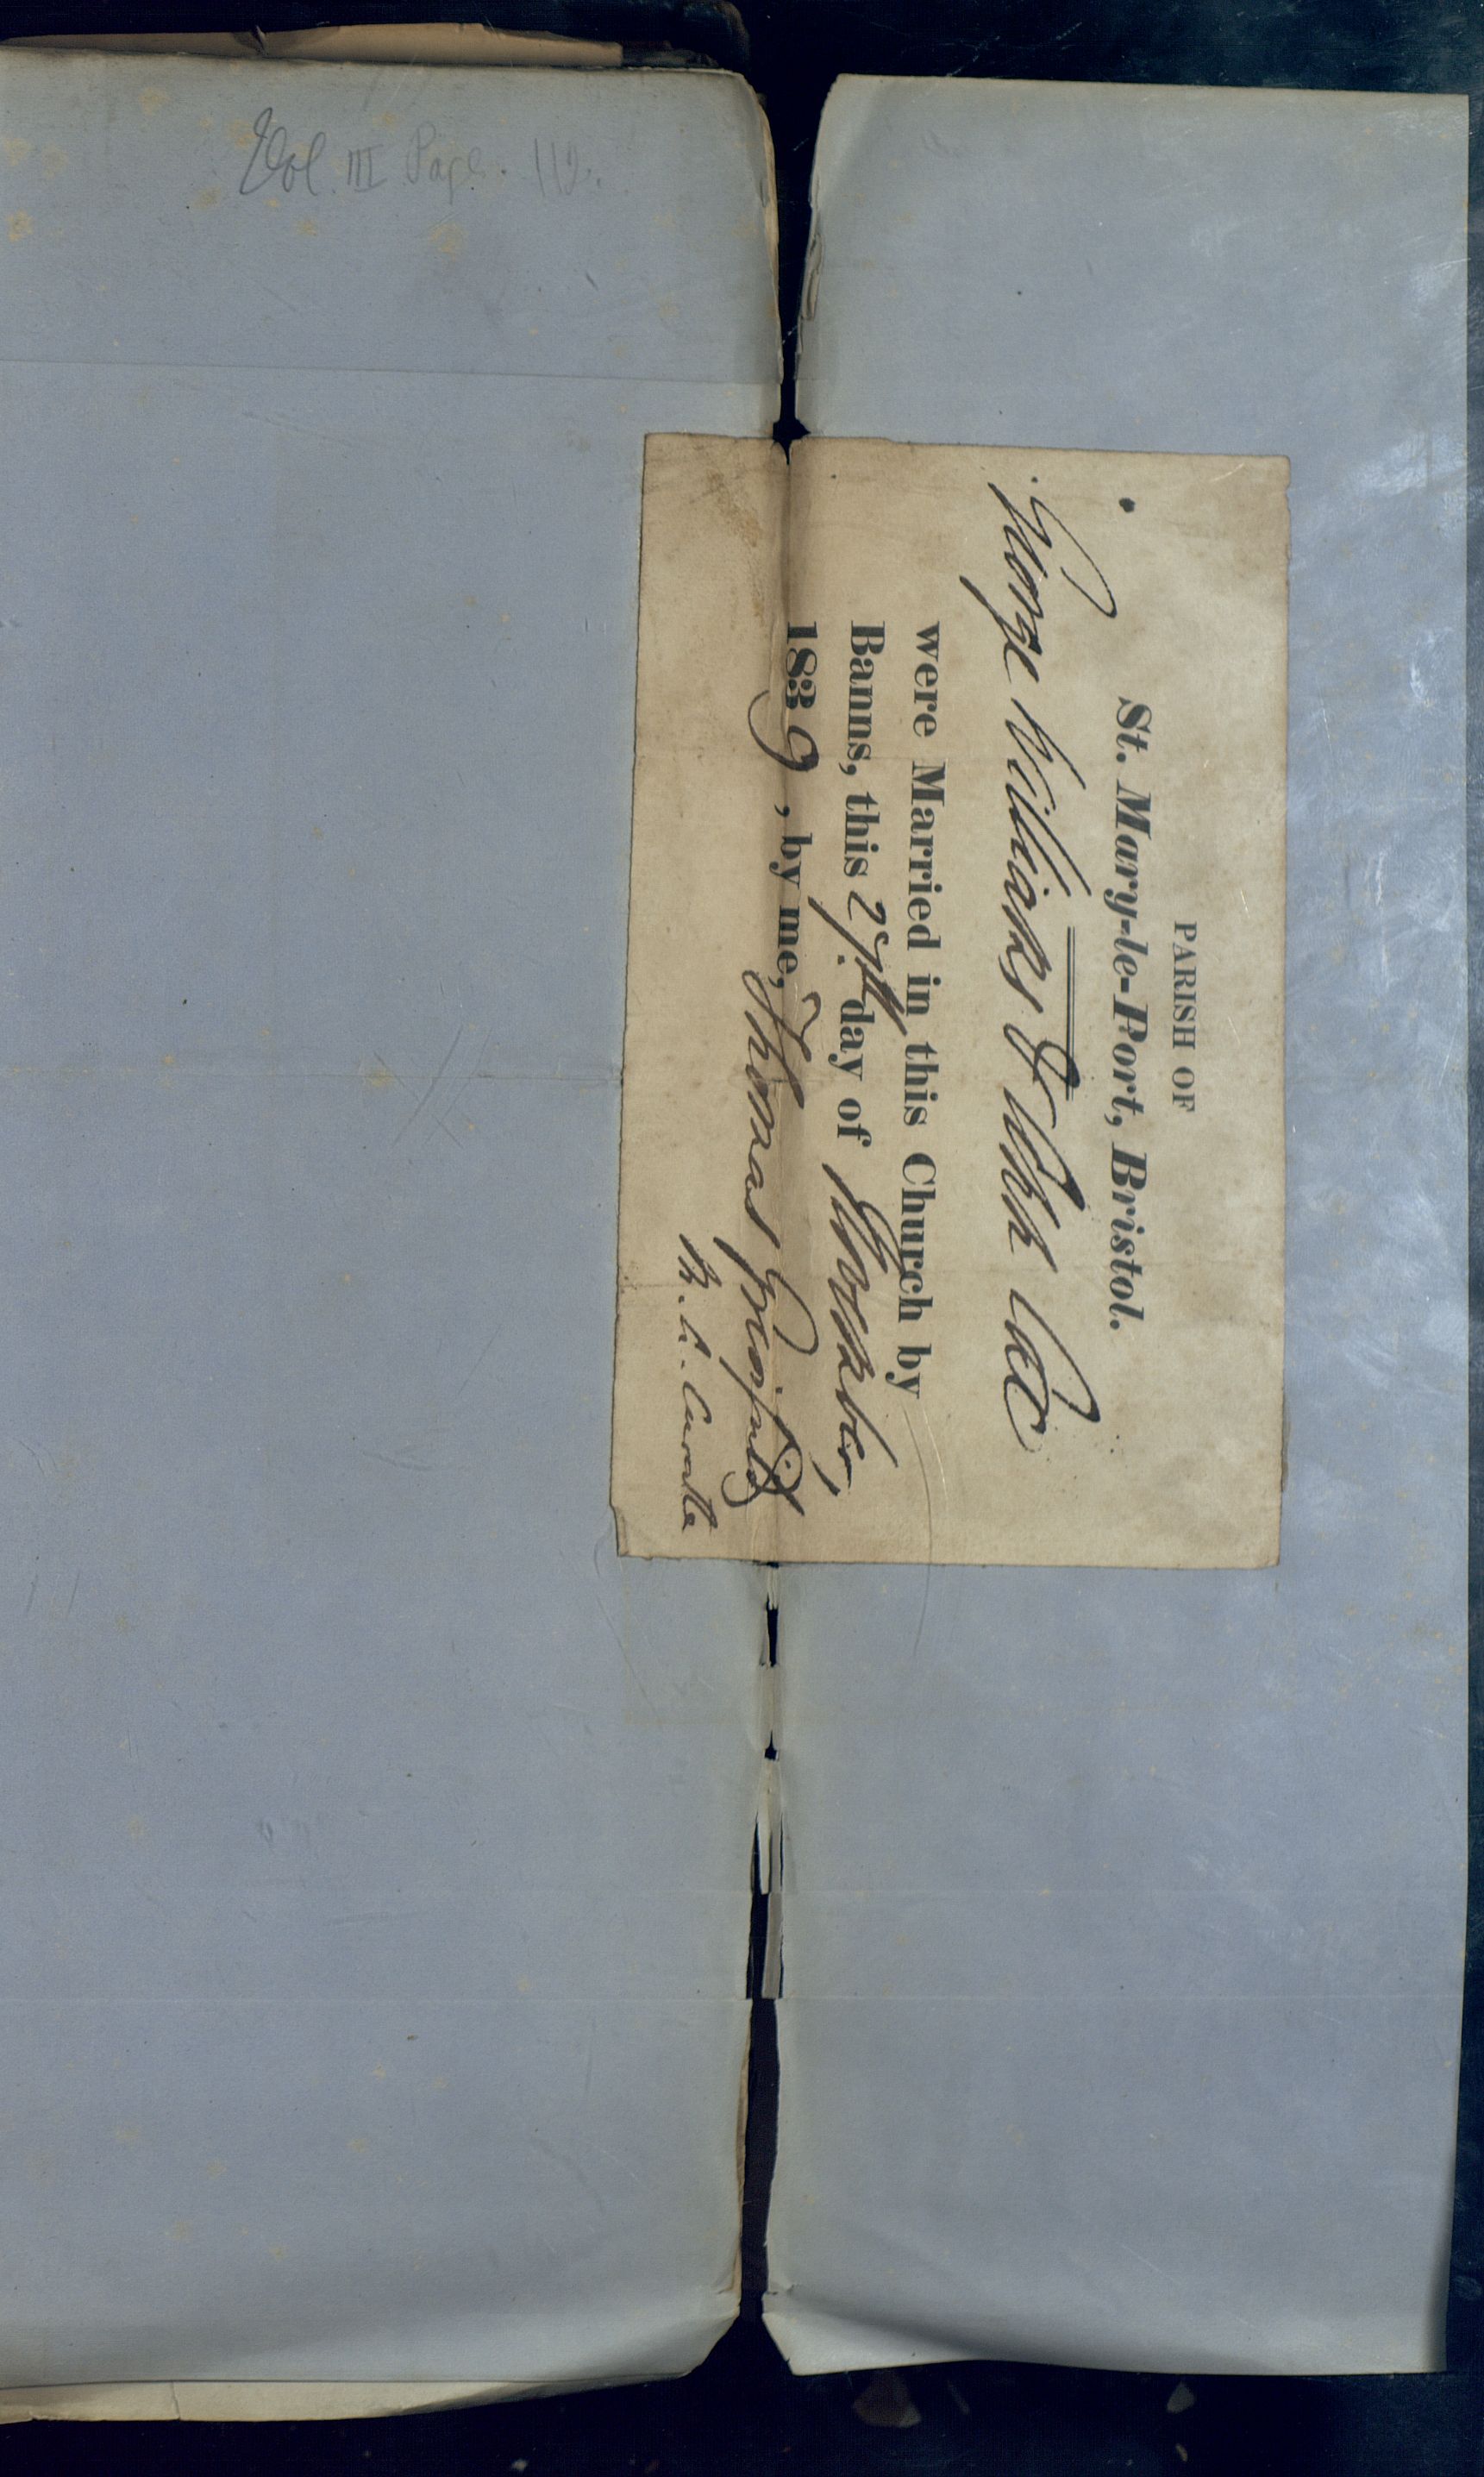 Vol. III Page. 112.
PARISH OF
St. Mary-le-Port, Bristol.
George Williams & Ann Cox
were Married in this Church by
Banns, this 27th day of November,
1839, by me, Thomas Grinfield
B. A. Curate